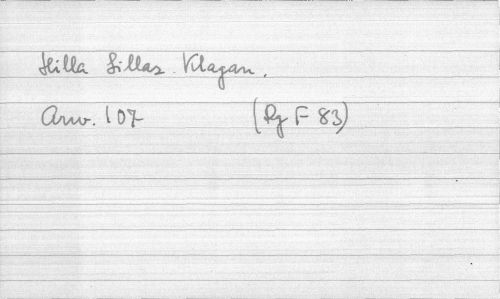 Hilla Lillas Klagan.
Arw. 107 (Rg F 83)